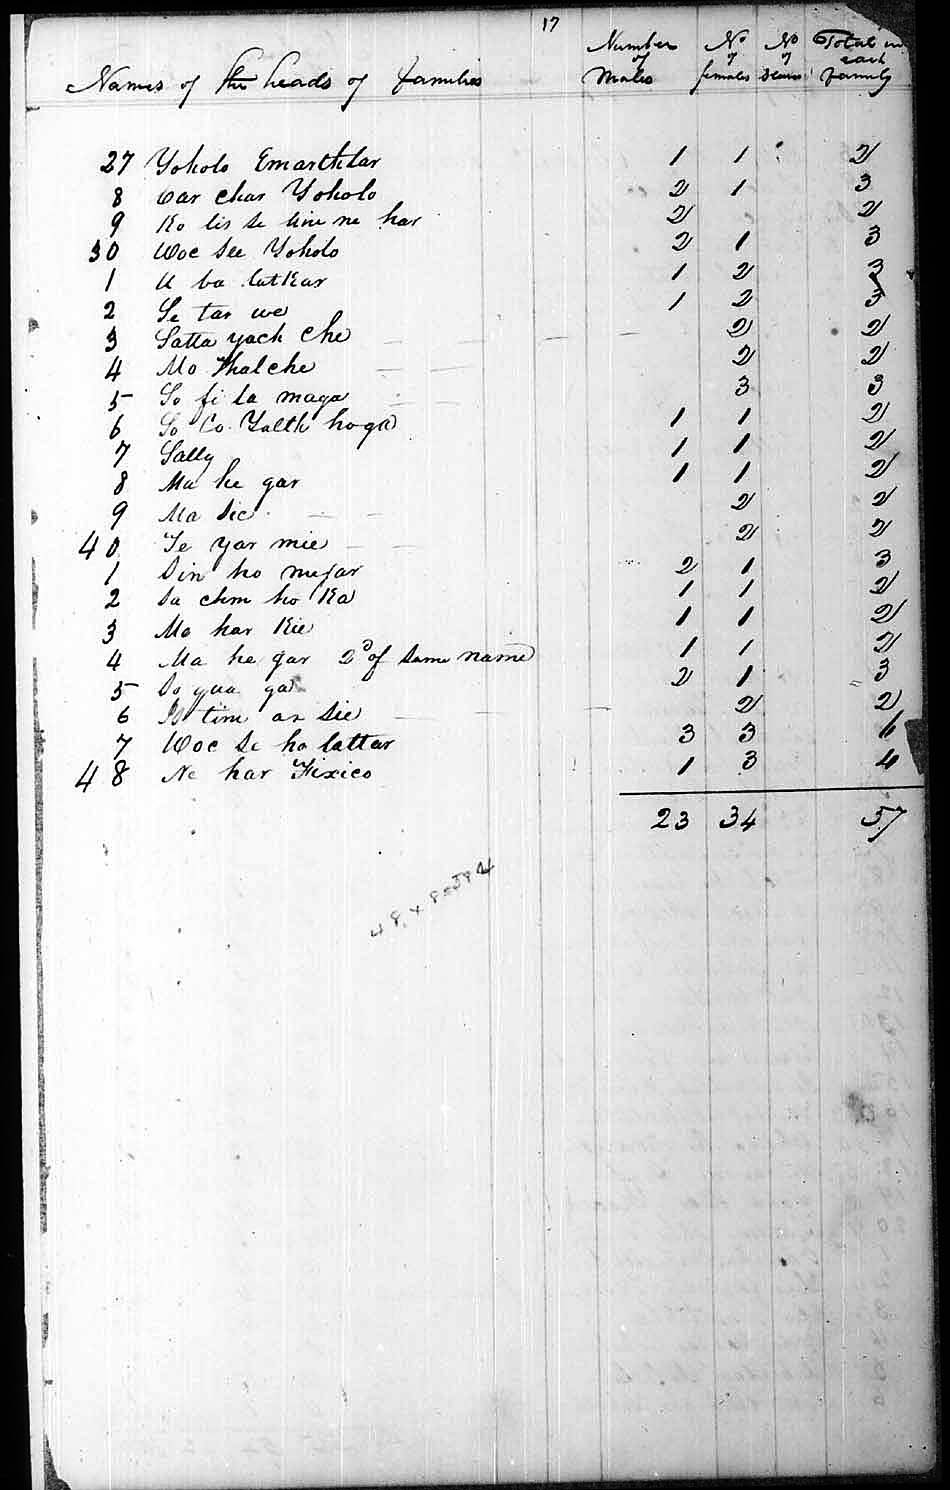 17
Names of the heads of families Number of Males No of females No of Slaves Total in each family
27 Yoholo Emarthlar 1 1 2
8 Oar char Yoholo 2 1 3
9 Ko lis se line ne har 2 2
30 Woc see Yoholo 2 1 3
1 U ba lut Kar 1 2 3
2 Se tar we 1 2 3
3 Satta yach che 2 2
4 Mo thal che 2 2
5 So fi la maga 3 3
6 So Co Yalth hoga 1 1 2
7 Sally 1 1 2
8 Ma he gar 1 1 2
9 Ma sic 2 2
40 Te yar mie 2 2
1 Sin ho mejar 2 1 3
2 Sa chim ho Ka 1 1 2
3 Mo har Kie 1 1 2
4 Ma he gar 2d of same name 1 1 2
5 So gua ga 2 1 3
6 tim ar sie 2 2
7 Woc se ho lattar 3 3 6
48 Ne har Fixico 1 3 4
23 34 57
48 x 8 = 384